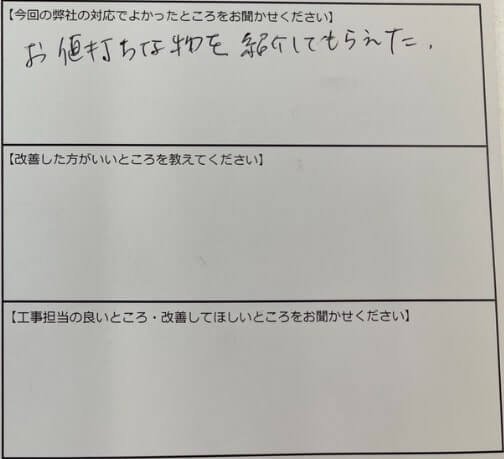 【今回の弊社の対応でよかったところをお聞かせください】
お値打ちな物を紹介してもらえた.
【改善した方がいいところを教えてください】
【工事担当の良いところ・改善してほしいところをお聞かせください】